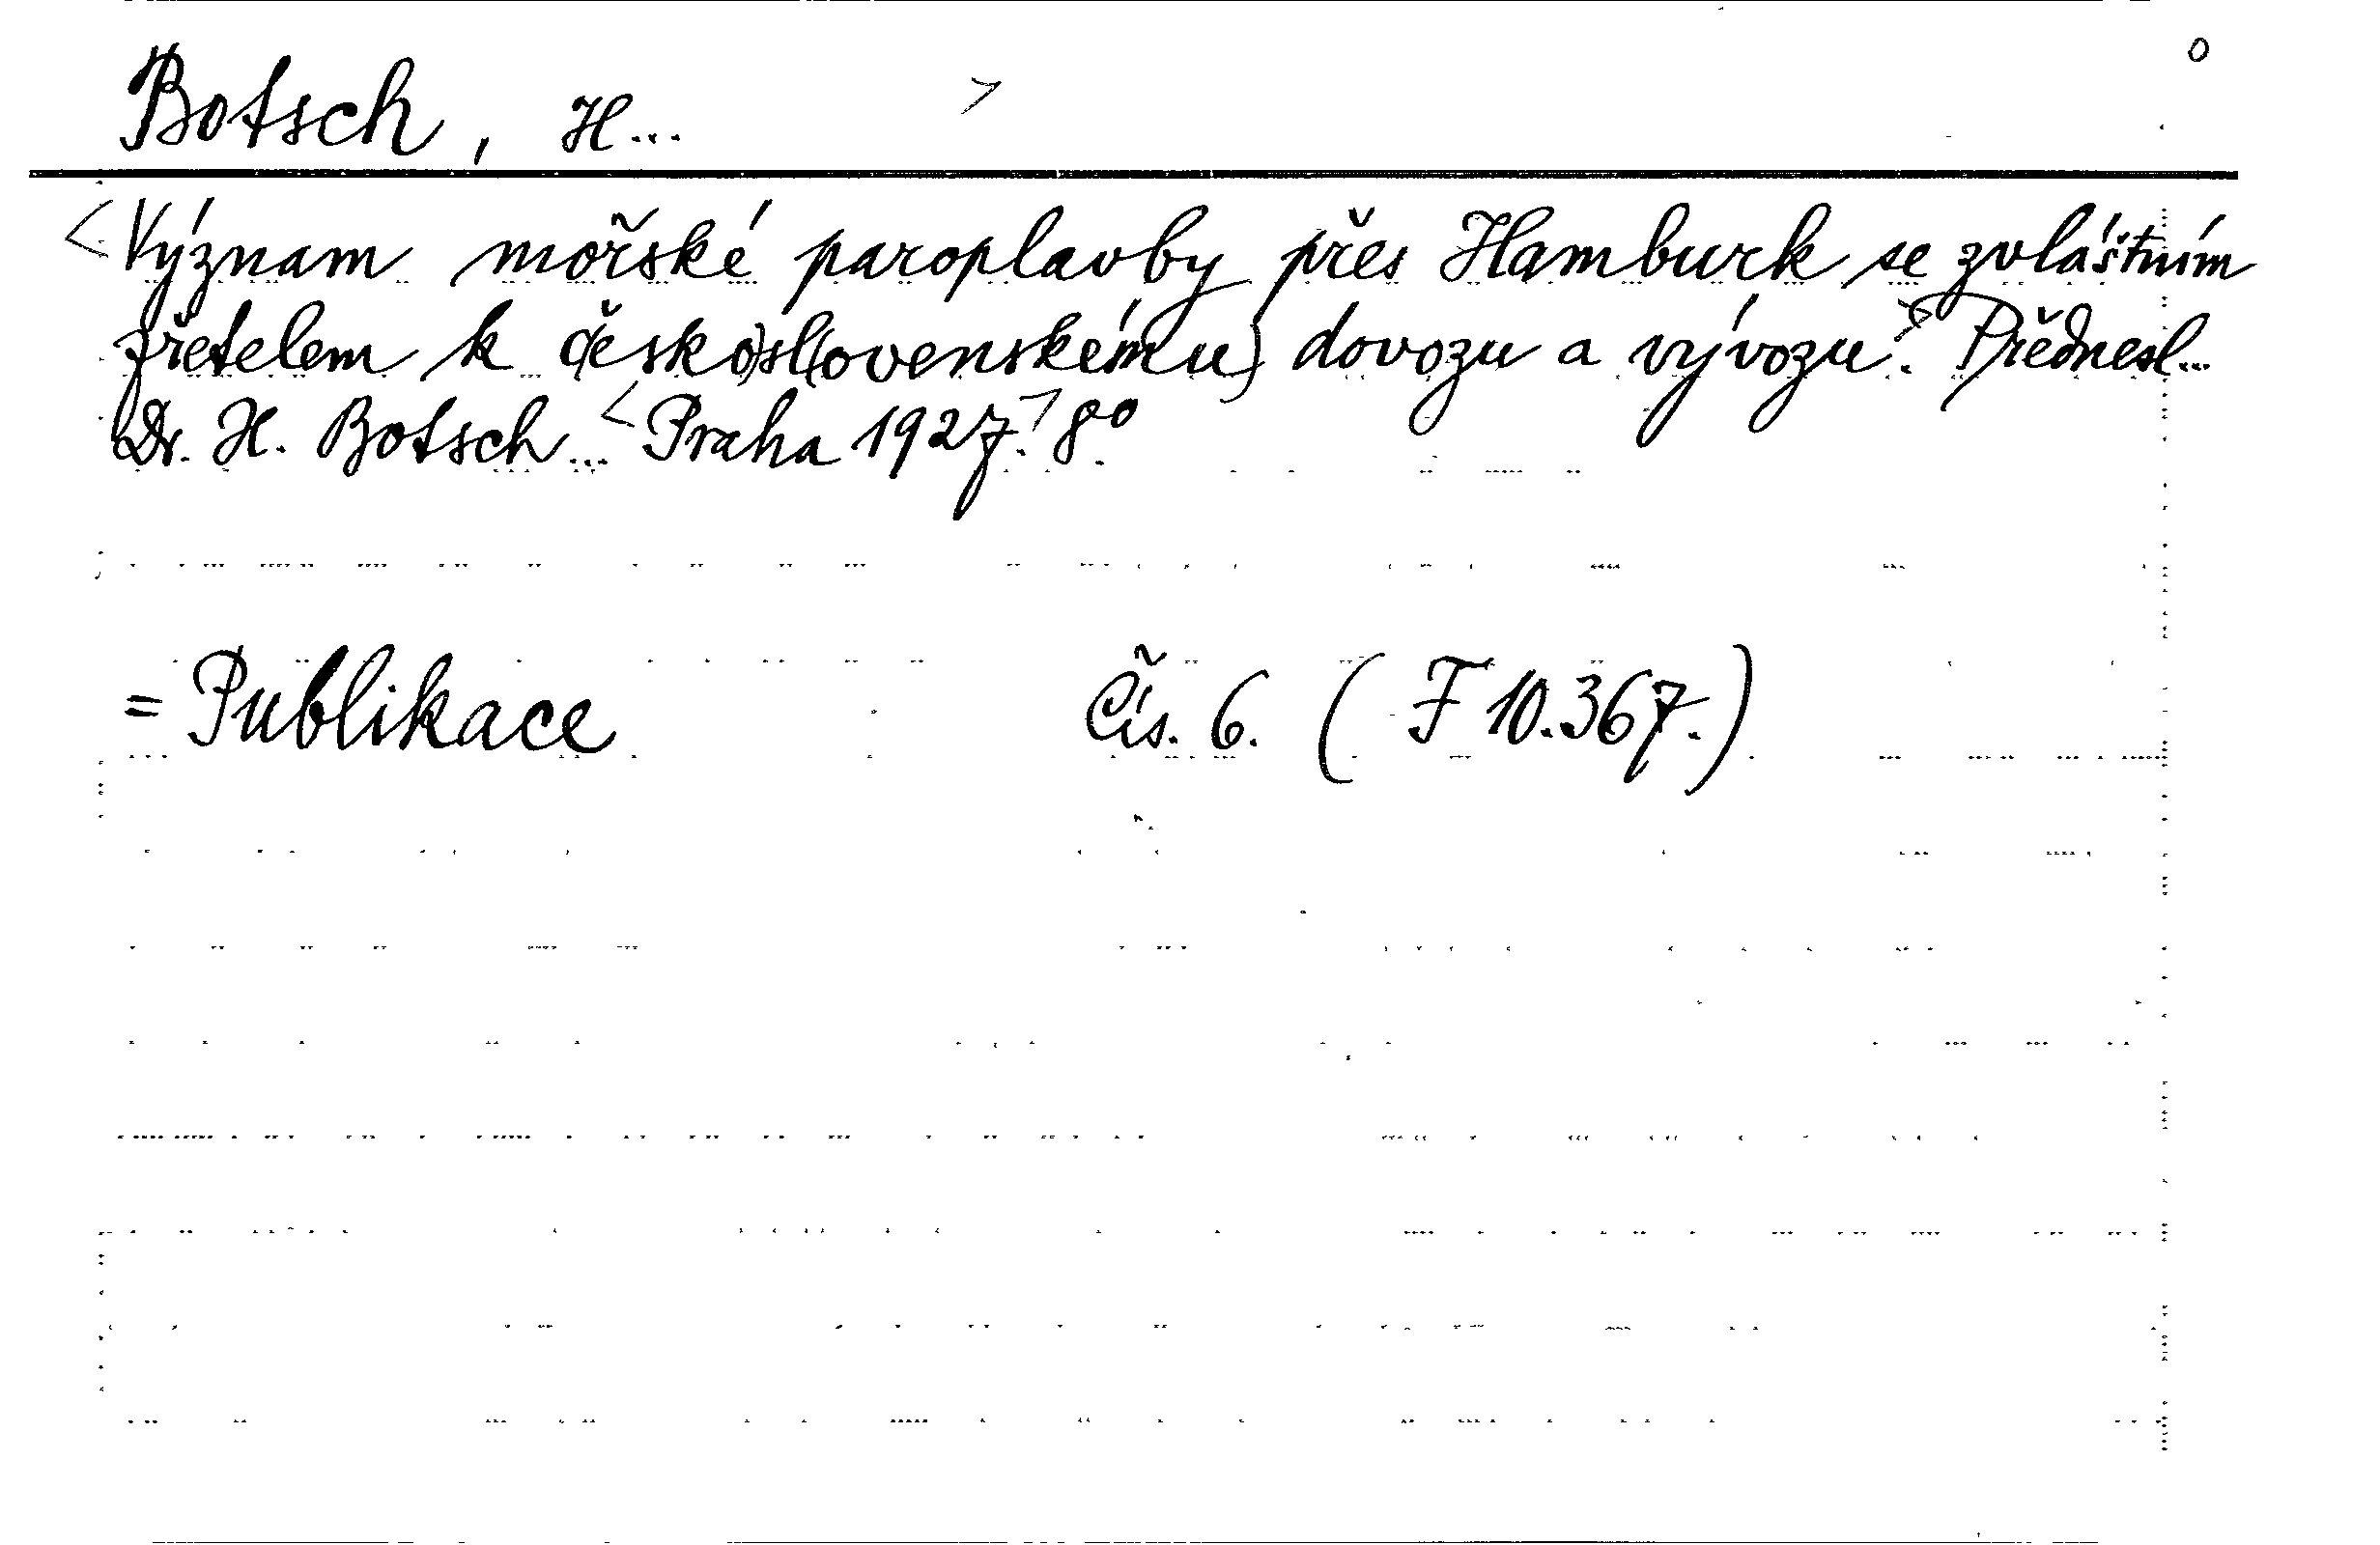 Botsch, H... >
<Význam mořské paroplavby přes Hamburk se zvláštním
zřetelem k č(esko)sl(ovenskému) dovozu a vývozu.> Přednesl...
Dr. H. Botsch... <Praha 1927.> 8°.
= Publikace Čís. 6. (F 10.367.)